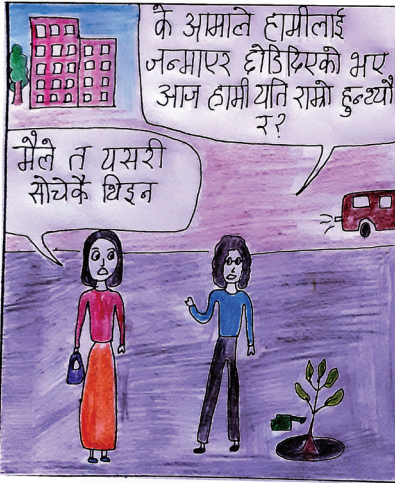 के आमाले हामीलाई
जन्माएर छोडिदिएको भए
आज हामी यति राम्रो हुन्थ्यौ
र?
मैले त यसरी
सोचेकै थिइन